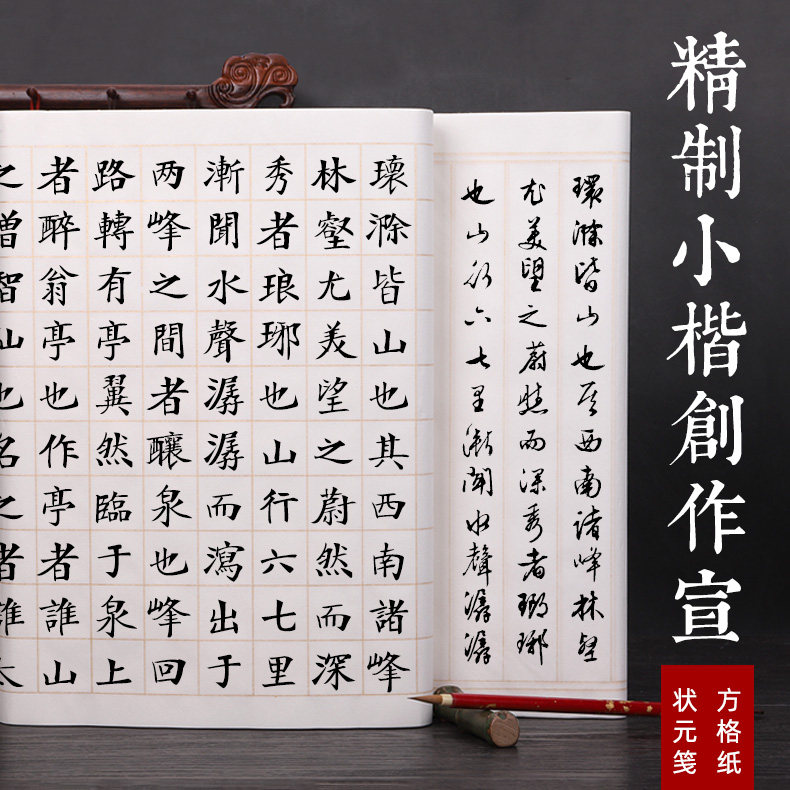 精制小楷創作宣
方格纸
状元笺
環滁皆山也其西南諸峰林壑
尤美望之蔚然而深秀者瑯琊
也山行六七里漸聞水聲潺潺
環滁皆山也其西南諸峰
林壑尤美望之蔚然而深
秀者琅琊也山行六七里
漸聞水聲潺潺而瀉出于
两峰之間者釀泉也峰回
路轉有亭翼然臨于泉上
者醉翁亭也作亭者誰山
之僧智仙也名之者誰太